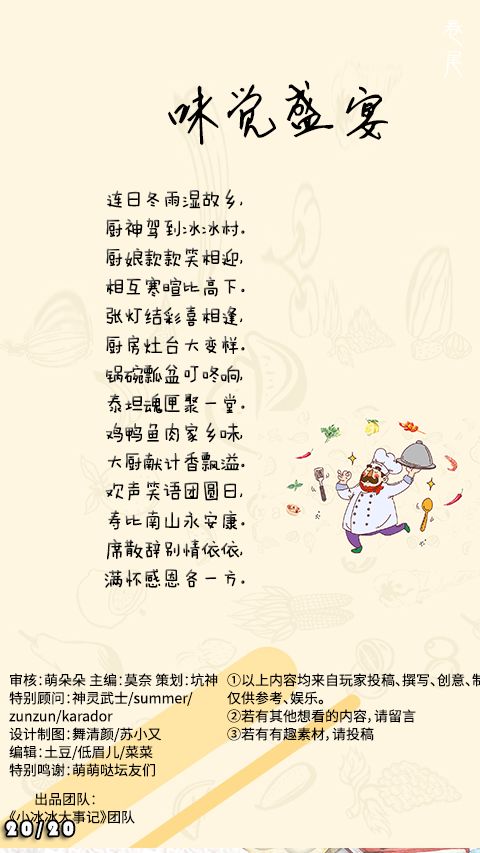 卷尾
味觉盛宴
连日冬雨湿故乡，
厨神驾到冰冰村。
厨娘款款笑相迎，
相互寒暄比高下。
张灯结彩喜相逢，
厨房灶台大变样。
锅碗瓢盆叮咚响，
泰坦魂匣聚一堂。
鸡鸭鱼肉家乡味，
大厨献计香飘溢。
欢声笑语团圆日，
寿比南山永安康。
席散辞别情依依，
满怀感恩各一方。
审核：萌朵朵 主编：莫奈 策划：坑神
特别顾问：神灵武士/summer/
zunzun/karador
设计制图：舞清颜/苏小又
编辑：土豆/低眉儿/菜菜
特别鸣谢：萌萌哒坛友们
出品团队：
《小冰冰大事记》团队
①以上内容均来自玩家投稿、撰写、创意、制
仅供参考、娱乐。
②若有其他想看的内容，请留言
③若有有趣素材，请投稿
20/20